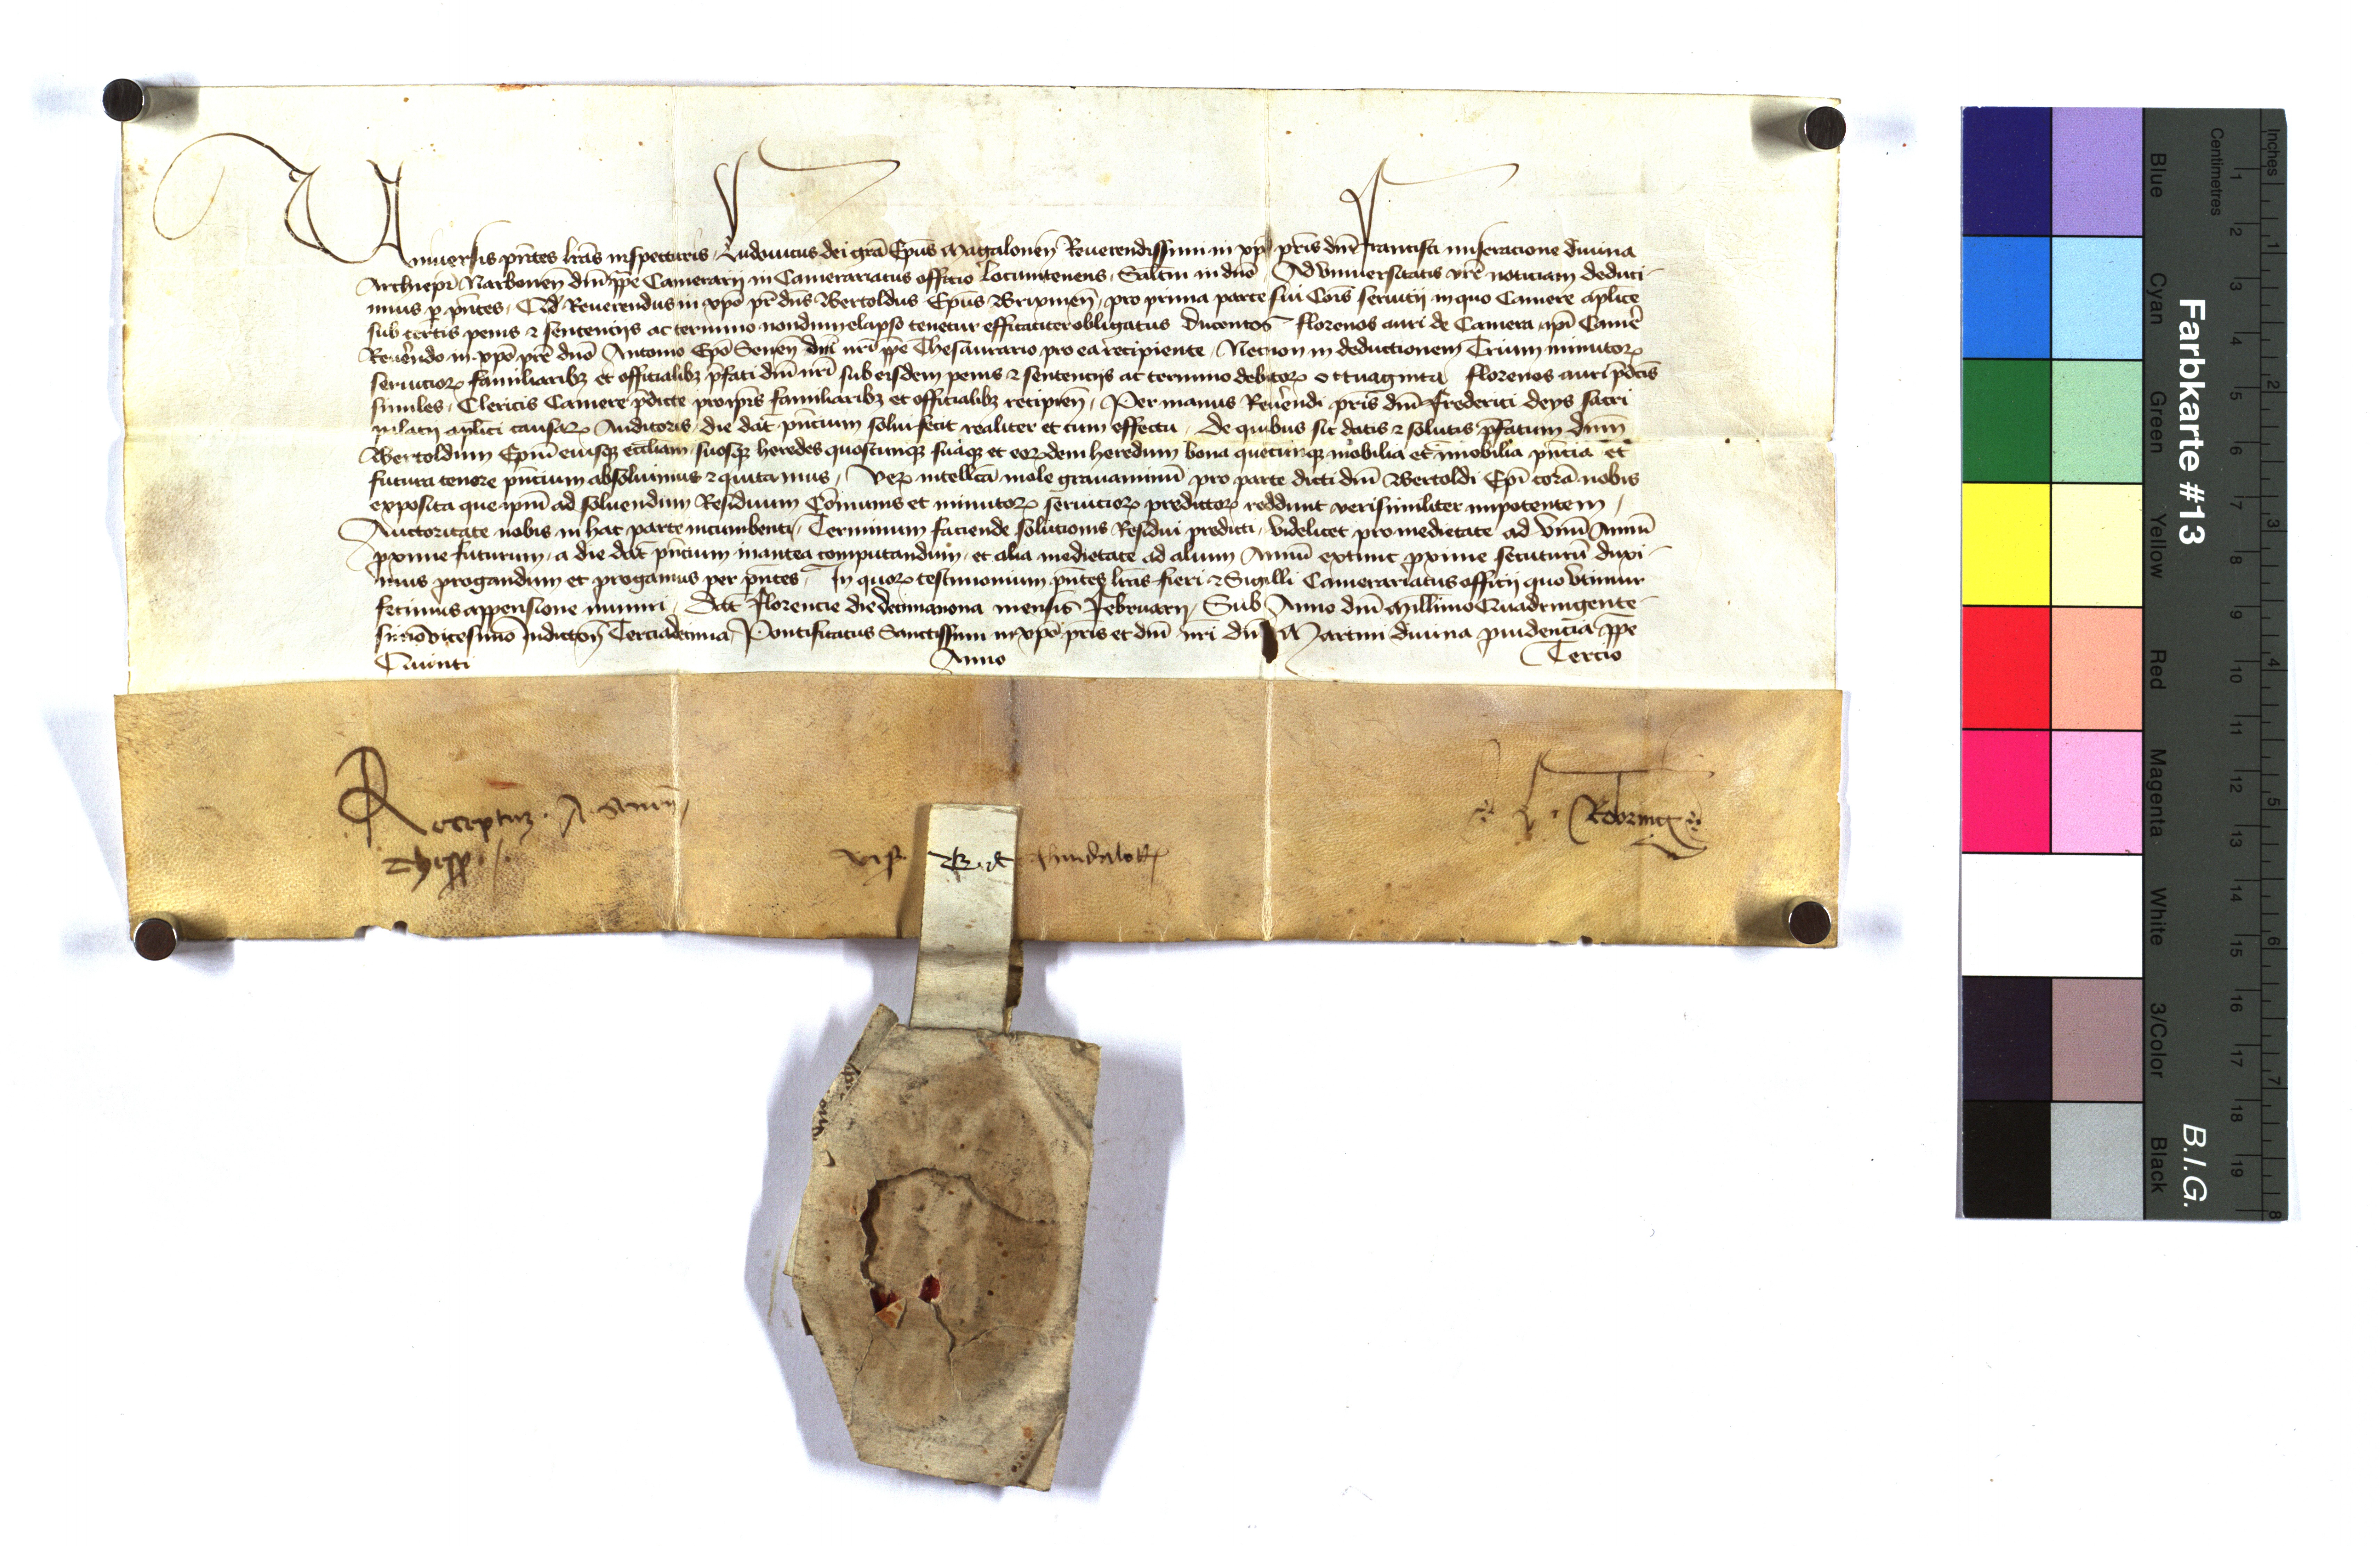 Vniuersis pn̄tes lr̄as inspecturis, Ludouicus dei grā Ep̄us Magalonen̄ Reuerendissimi in xp̄o pr̄is dn̄i Francisci miseracione diuina
Archiep̄i Narbonen̄ dn̄i pp̄e Camerarij in Camerariatus officio Locumtenens, Salt̄m in dn̄o, Ad vniuersitatis vr̄e noticiam deduci-
mus ꝑ pn̄tes, Qd̄ Reuerendus in xp̄o pr̄ dn̄s Bertoldus Ep̄us Brixinen̄, pro prima parte sui Cōis seruicij in quo Camere ap̄lice
sub certis penis ⁊ sentencijs ac termino nondum elapso tenetur efficaciter obligatus Ducentos florenos auri de Camera ip̄i Camē
Reuēndo in xp̄o pr̄e dn̄o Antonio Ep̄o Senen̄ dn̄i nr̄i pp̄e Thesaurario pro ea recipiente, Necnon in deductionem Trium minutoꝝ
seruicioꝝ familiaribꝫ et officialibꝫ p̄fati dn̄i nr̄i sub eisdem penis ⁊ sentencijs ac termino debitoꝝ octuaginta florenos auri p̄dc̄is
similes, Clericis Camere p̄dicte pro ip̄is familiaribꝫ et officialibꝫ recipien̄, Per manus Reuēndi pr̄is dn̄i Frederici deys sacri
palacij ap̄lici causaꝝ Auditoris, die dat̄ pn̄cium solui fecit realiter et cum effectu, De quibus sic datis ⁊ solutis p̄fatum dn̄m
Bertoldum Ep̄m eiusqꝫ eccl̄iam, suosqꝫ heredes quoscunqꝫ suaqꝫ et eoꝝdem heredum bona quecunqꝫ mobilia et īmobilia pn̄cia et
futura tenore pn̄cium absoluimus ⁊ quitamus, Veꝝ intellc̄a mole grauaminū pro parte dicti dn̄i Bertoldi Ep̄i corā nobis
exposita que ip̄m ad soluendum Residuum Cōmunis et minutoꝝ seruicioꝝ predictoꝝ reddunt verisimiliter impotentem,
Auctoritate nobis in hac parte incumbenti, Terminum faciende solucionis Residui predicti, videlicet pro medietate ad vnū Annū
ꝓxime futurum, a die dat̄ pn̄cium inantea computandum, et alia medietate ad alium Annū extunc ꝓxime secuturū duxi-
mus ꝓrogandum et ꝓrogamus per pn̄tes, In quoꝝ testimonium pn̄tes lr̄as fieri ⁊ Sigilli Camerariatus officij quo vtimur
fecimus appensione muniri, Dat̄ Florencie die decimanona mensis Februarij, Sub Anno dn̄i Millīmo Quadringente-
simo vicesimo Indiction̄ Terciadecima, Pontificatus Sanctissimi in xp̄o pr̄is et dn̄i nr̄i dn̄i Martini diuina ꝓuidencia pp̄e
Quinti Anno Tercio
Receptum . A . Senen̄
Thesꝝ
L . Robring
vis